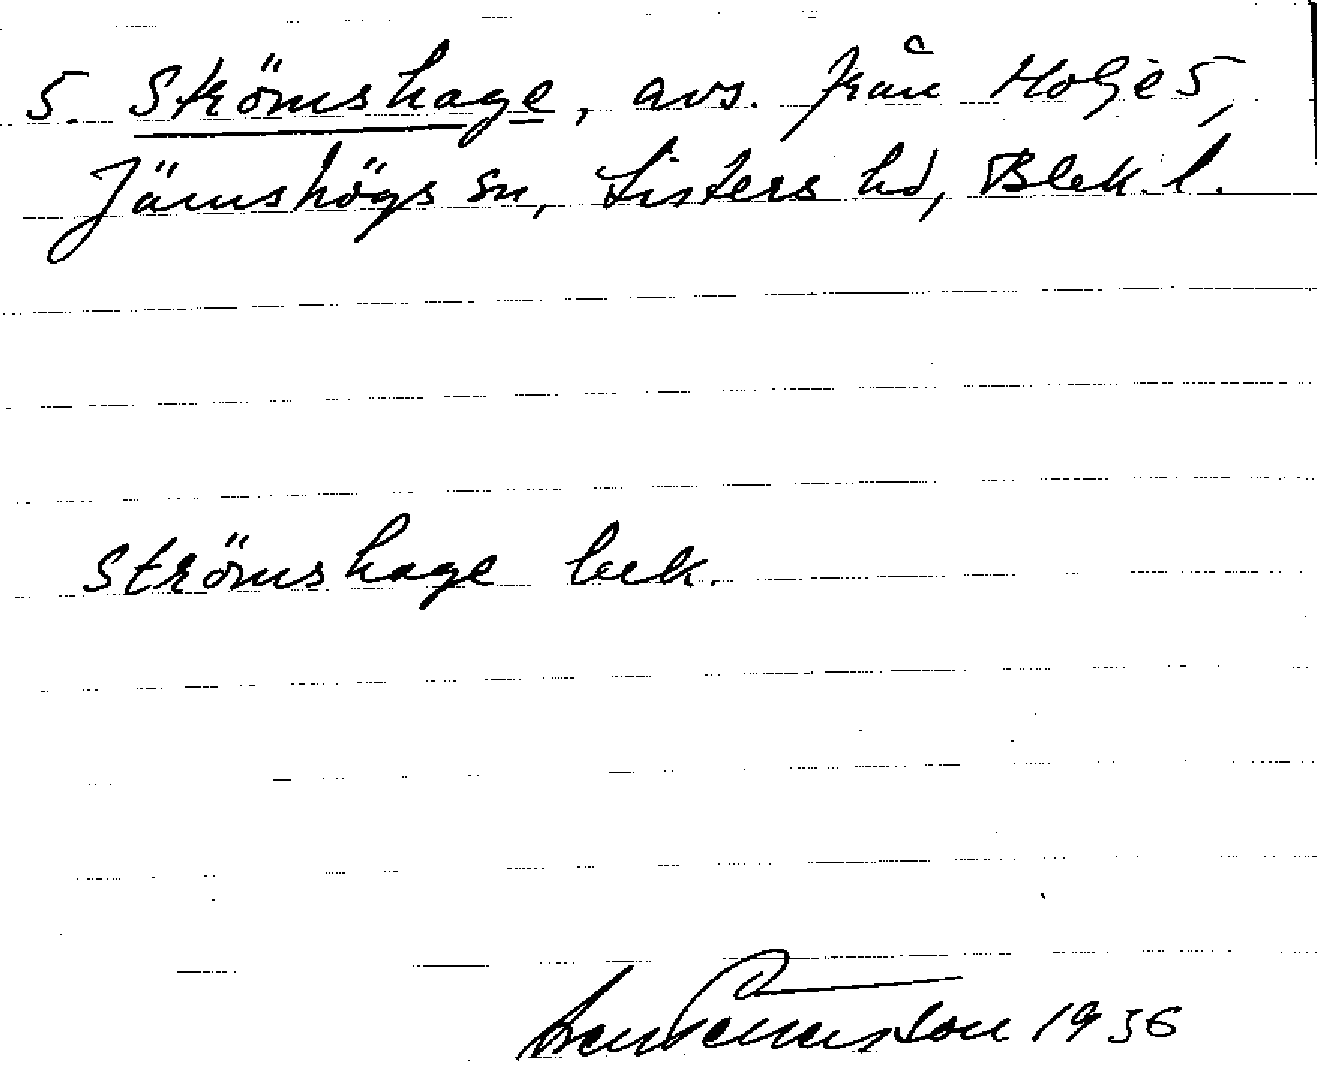 5. Strömshage, avs. från Holje 5,
Jämshögs sn, Listers hd, Blek. l.
Strömshage bek.
1956